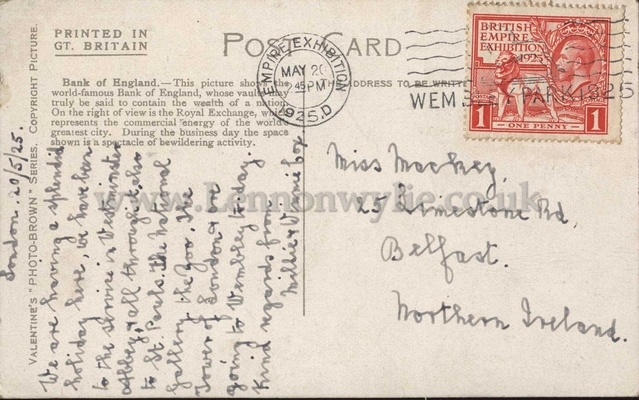 PRINTED IN
GT. BRITAIN
POST CARD
Bank of England.—This picture shows the
world-famous Bank of England, whose vaults may
truly be said to contain the wealth of a nation.
On the right of view is the Royal Exchange, which
represents the commercial energy of the world's
greatest city. During the business day the space
shown is a spectacle of bewildering activity.
THE ADDRESS TO BE WRITTEN
EMPIRE EXHIBITION
MAY 20
2 45 PM
1925.D
WEMBLEY PARK 1925
BRITISH
EMPIRE
EXHIBITION
1925
1 ONE PENNY 1
VALENTINE'S "PHOTO-BROWN" SERIES. COPYRIGHT PICTURE.
London. 20/5/25.
We are having a splendid
holiday here, we have been
to the service in Westminster
Abbey & all through it, also
to St. Pauls. The National
Gallery the Zoo. The
Tower of London & are
going to Wembley to-day.
Kind regards from
Millie & Winnie Cox.
Miss Mackey,
25 Limestone Rd,
Belfast.
Northern Ireland.
www.Lennonwylie.co.uk